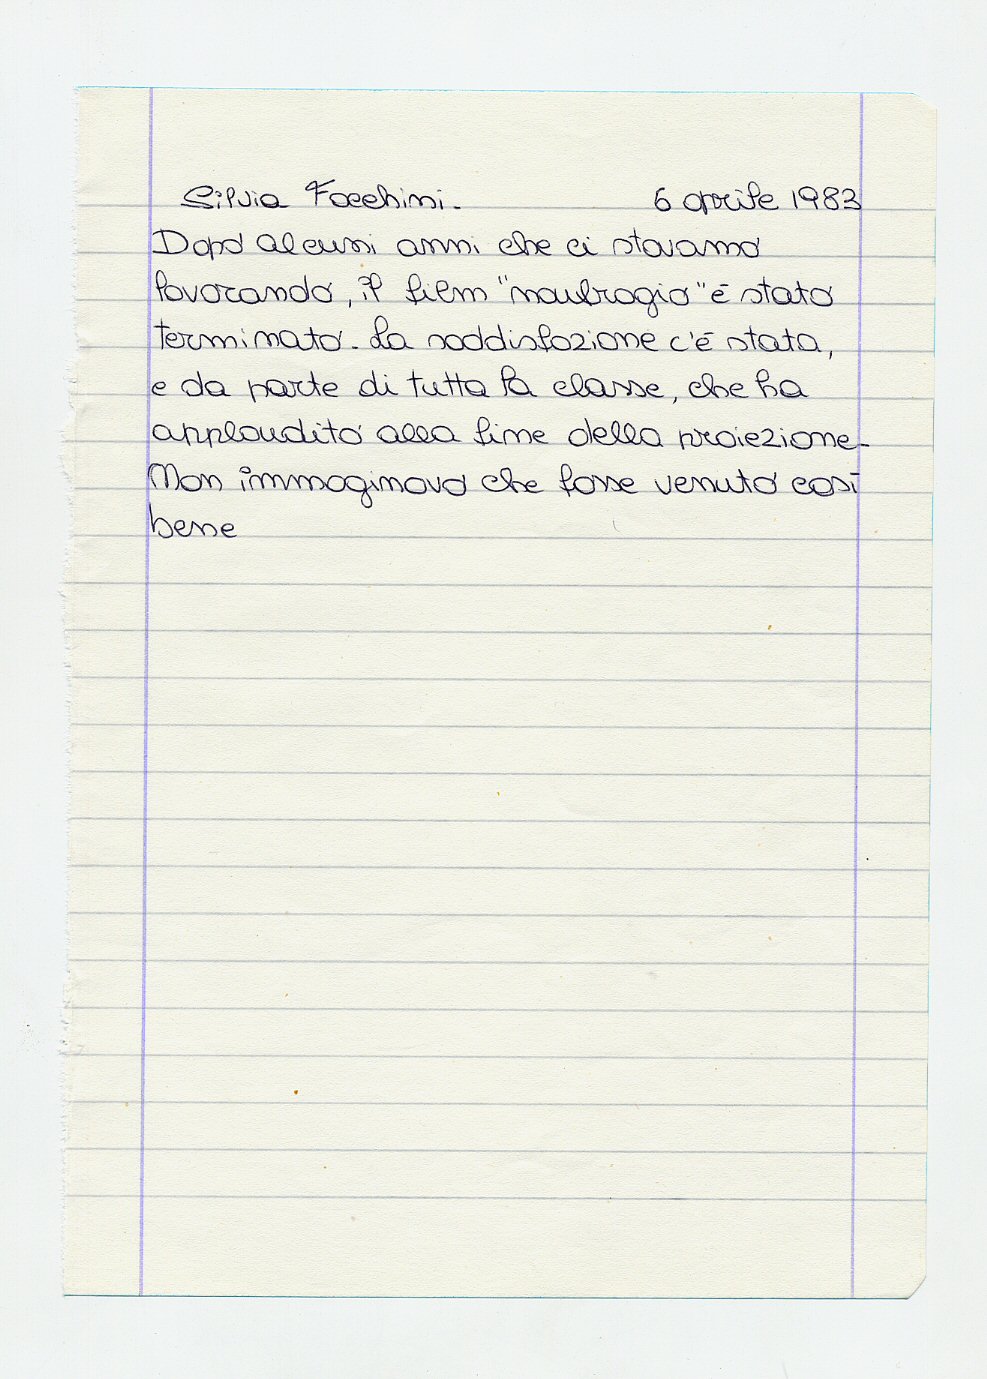 Silvia Facchini. 6 aprile 1983
Dopo alcuni anni che ci stavamo
lavorando, il film "naufragio" è stato
terminato. La soddisfazione c'è stata,
e da parte di tutta la classe, che ha
applaudito alla fine della proiezione.
Non immaginavo che fosse venuto così
bene